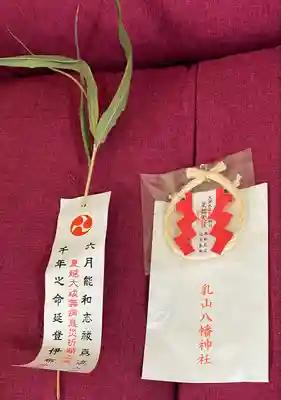 六月能和志祓爲
夏越大祓無病息災祈願
千年之命延登伊
夏越大祓
乳山八幡神社